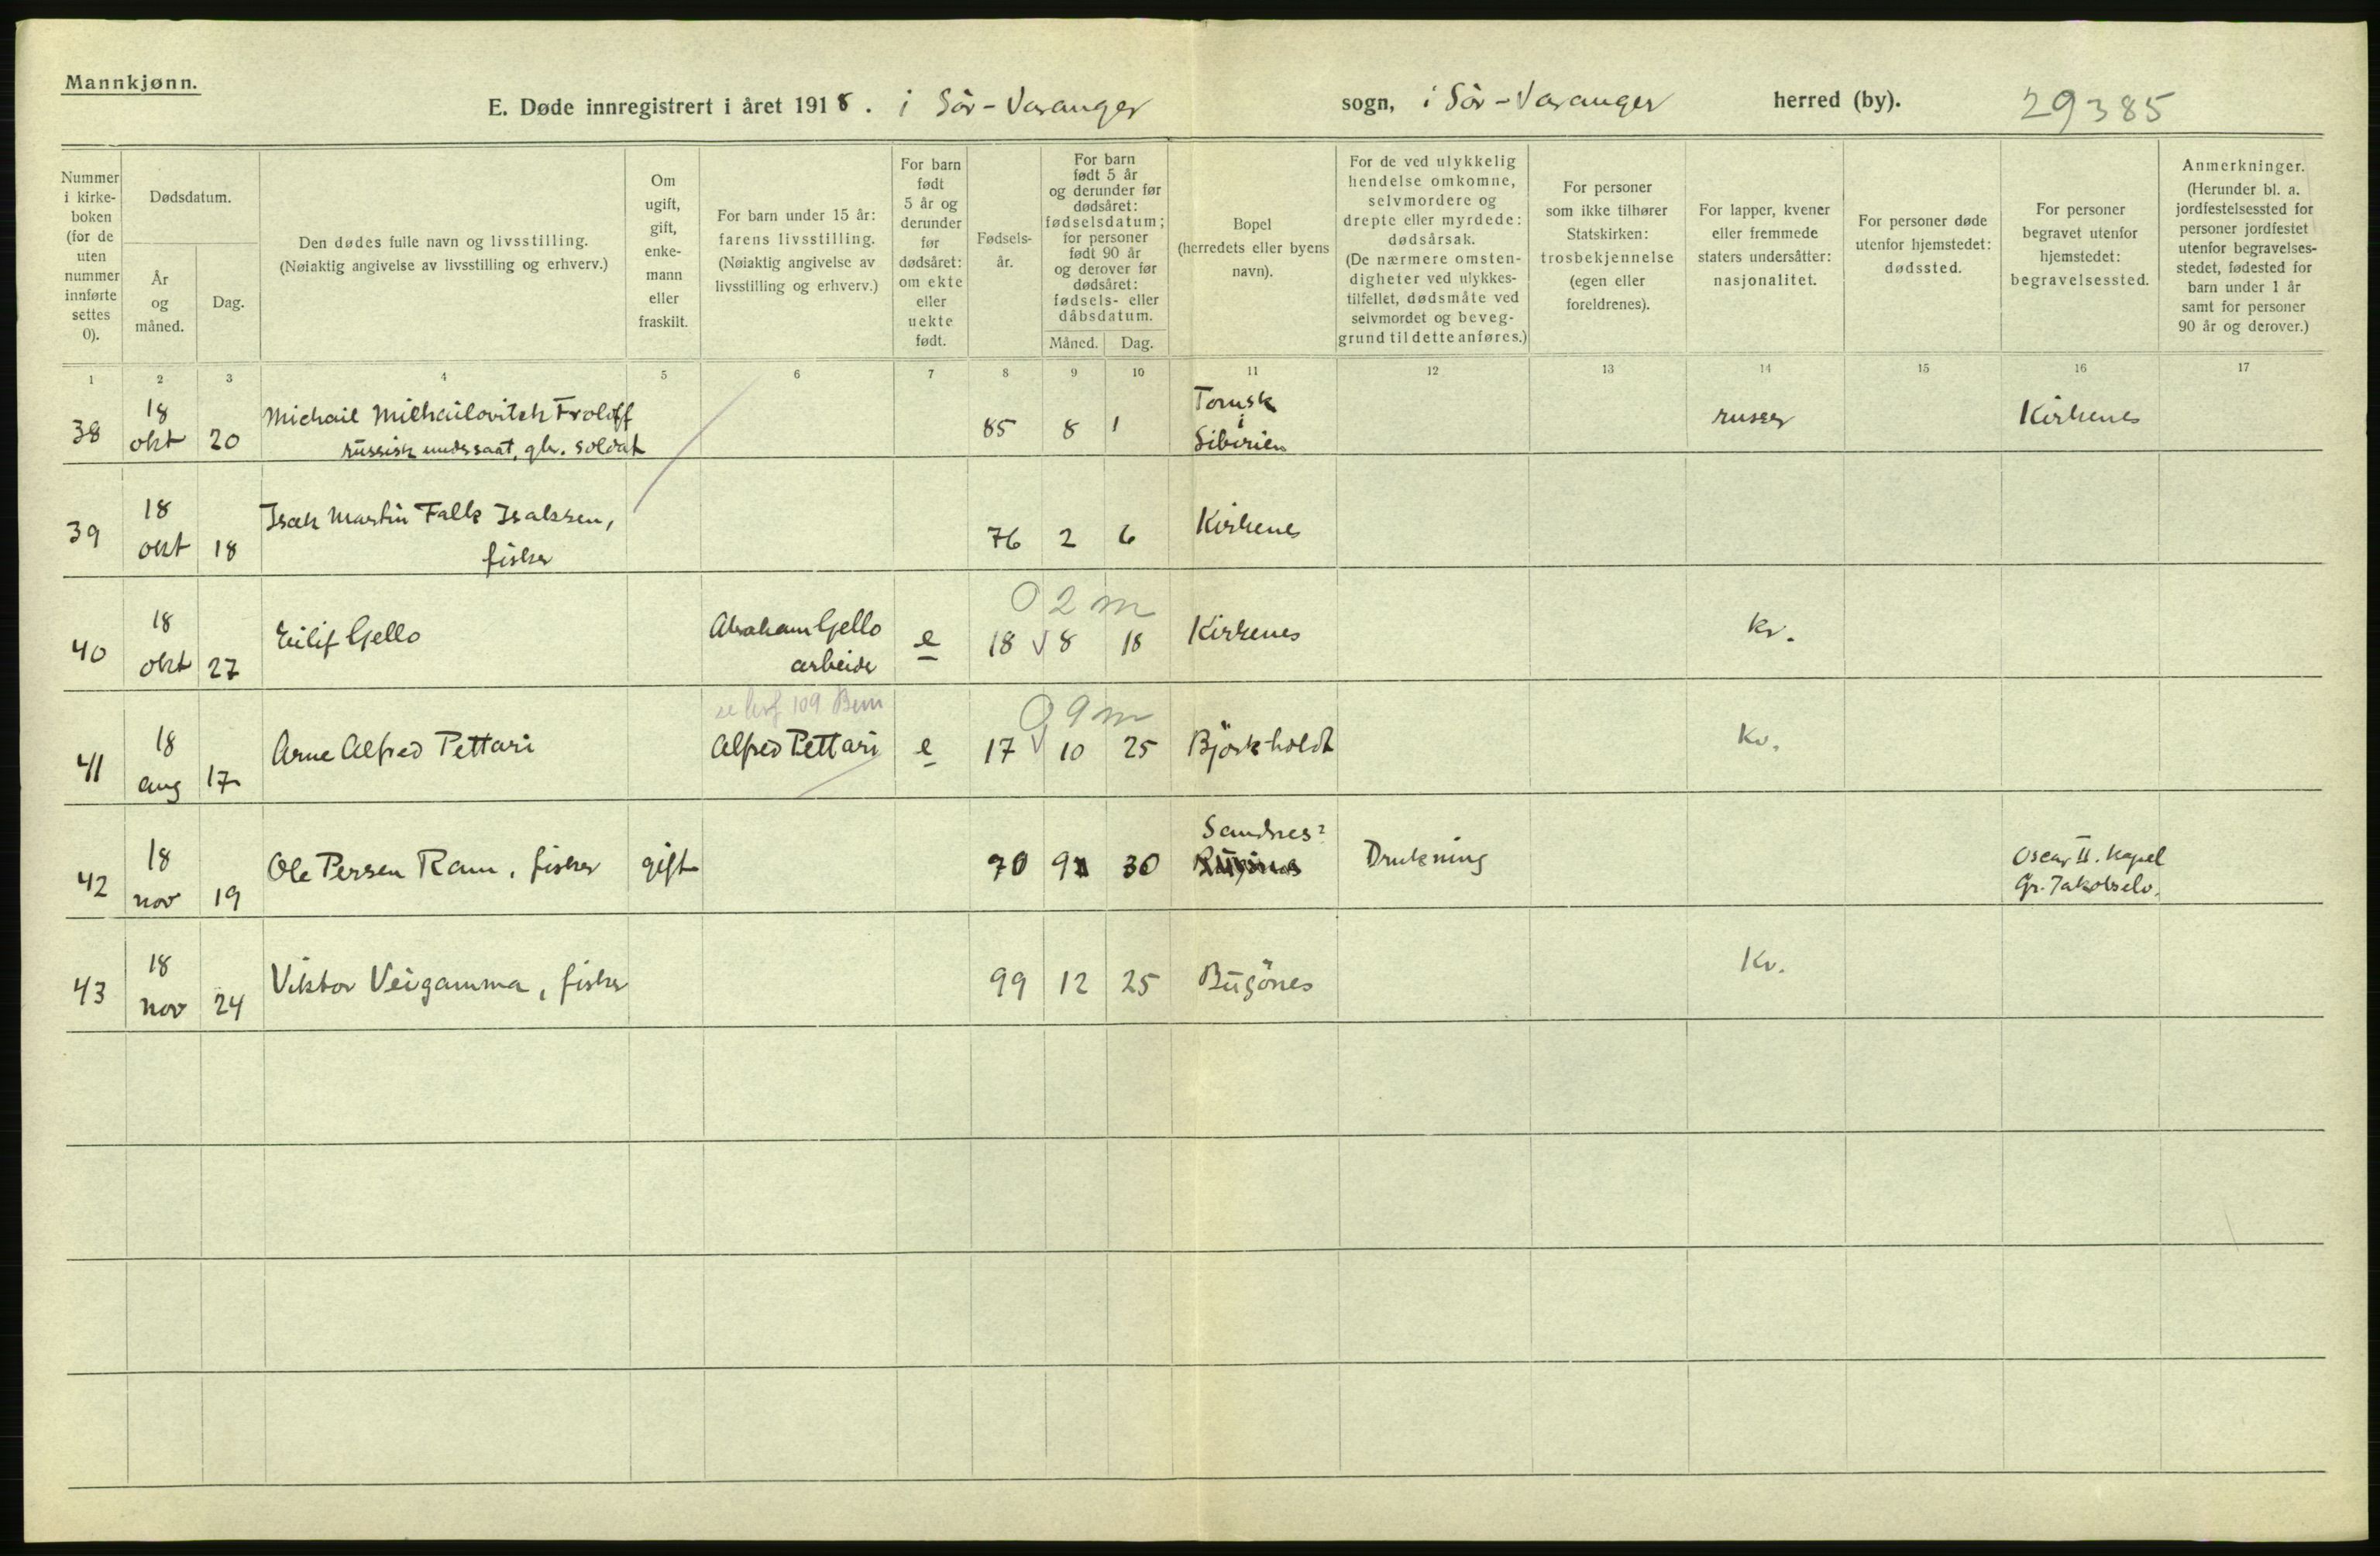 Mannkjønn.
E. Døde innregistrert i året 1918. i Sör-Varanger sogn, i Sör-Varanger herred (by). 29385
Nummer i kirke-boken (for de uten nummer innførte settes 0).
Dødsdatum.
År og måned.
Dag.
Den dødes fulle navn og livsstilling.
(Nøiaktig angivelse av livsstilling og erhverv.)
Om ugift, gift, enke-mann eller fraskilt.
For barn under 15 år: farens livsstilling.
(Nøiaktig angivelse av livsstilling og erhverv.)
For barn født 5 år og derunder før dødsåret: om ekte eller uekte født.
Fødsels-år.
For barn født 5 år og derunder før dødsåret: fødselsdatum; for personer født 90 år og derover før dødsåret: fødsels- eller dåbsdatum.
Måned.
Dag.
Bopel (herredets eller byens navn).
For de ved ulykkelig hendelse omkomne, selvmordere og drepte eller myrdede: dødsårsak.
(De nærmere omsten-digheter ved ulykkes-tilfellet, dødsmåte ved selvmordet og beveg-grund til dette anføres.)
For personer som ikke tilhører Statskirken: trosbekjennelse (egen eller foreldrenes).
For lapper, kvener eller fremmede staters undersåtter: nasjonalitet.
For personer døde utenfor hjemstedet: dødssted.
For personer begravet utenfor hjemstedet: begravelsessted.
Anmerkninger.
(Herunder bl. a. jordfestelsessted for personer jordfestet utenfor begravelses-stedet, fødested for barn under 1 år samt for personer 90 år og derover.)
1 2 3 4 5 6 7 8 9 10 11 12 13 14 15 16 17
38 18 okt 20 Michail Michailovitch Froloff 85 8 1 Tomsk i Sibirien russer Kirkenes
russisk undersaat, gbr. soldat
39 18 okt 18 Isak Martin Falk Isaksen, 76 2 6 Kirkenes
fisker
0 2 m
40 18 okt 27 Eilif Gjello Abraham Gjello arbeider e 18 8 18 Kirkenes kv.
109
0 9 m
41 18 aug 17 Arne Alfred Pettari Alfred Pettari e 17 10 25 Björkholdt Kv.
42 18 nov 19 Ole Persen Ram, fisker gift 70 9 30 Sandnes? Drukning Oscar II. Kapel
Gr. Jakobselv.
43 18 nov 24 Viktor Veigamma, fisker 99 12 25 Bugönes Kv.